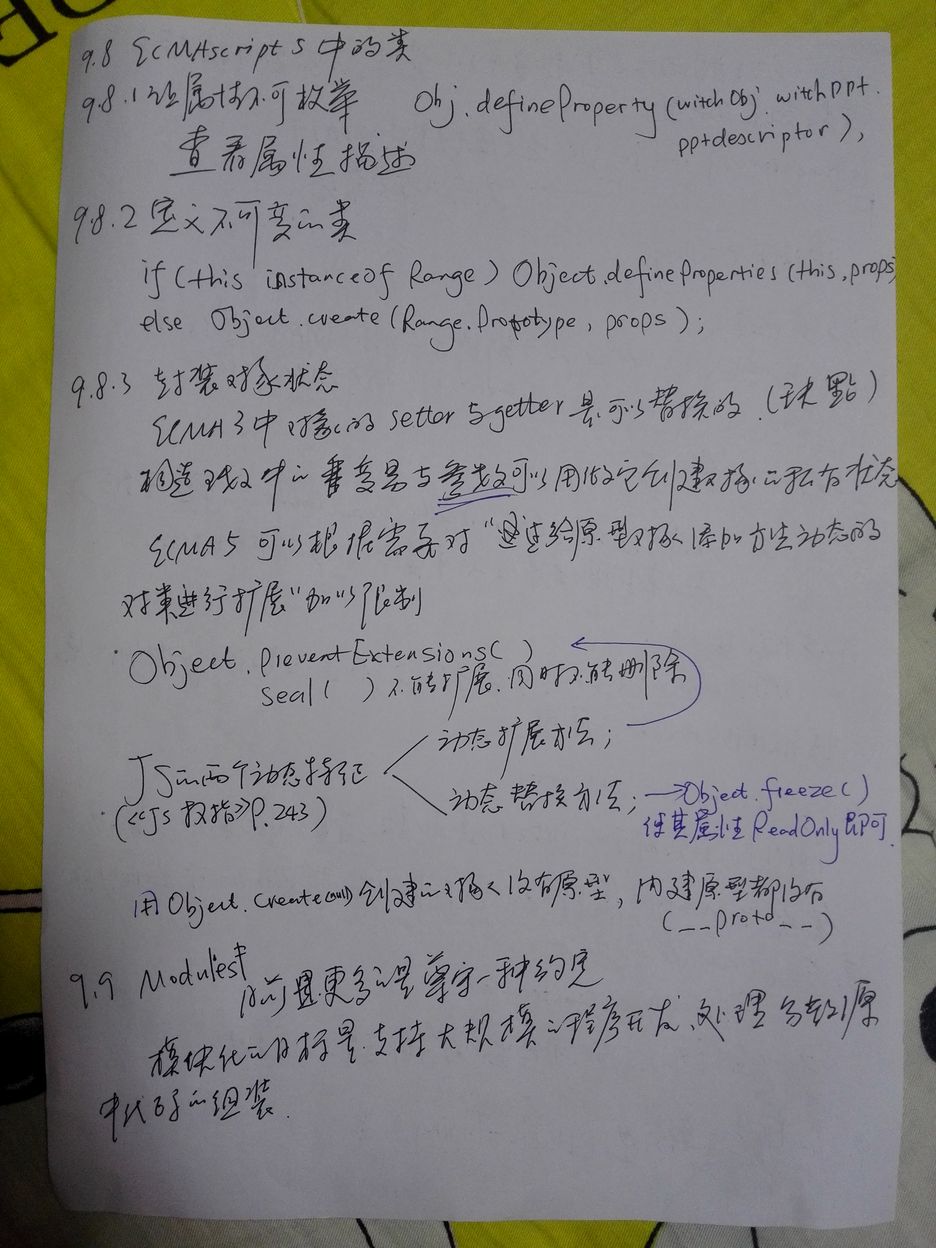 9.8 ECMAscript 5 中的类
9.8.1 让属性不可枚举 Obj.defineProperty(witchObj, witchPpt.
pptdescriptor),
查看属性描述
9.8.2 定义不可变的类
if(this instanceof Range) Object.defineProperties(this, props)
else Object.create(Range.Prototype, props);
9.8.3 封装对象状态
ECMA3中对象的setter与getter是可以替换的.(缺點)
构造函数中的变量与参数可以用做它创建对象的私有状态
ECMA5 可以根据需要对"通过给原型对象添加方法动态的
对类进行扩展"加以限制
Object.preventExtensions( )
seal( ) 不能扩展.同时不能删除
动态扩展方法;
JS的两个动态特征
动态替换方法; →Object.freeze()
(<<JS权指>>P.243)
使其属性ReadOnly即可.
用Object.create(null)创建的对象没有原型, 内建原型都没有
(__proto__)
9.9 Modules
目前且更多的是尊守一种约定
模块化的目标是.支持大规模的程序开发、处理分散的源
中代码的组装.